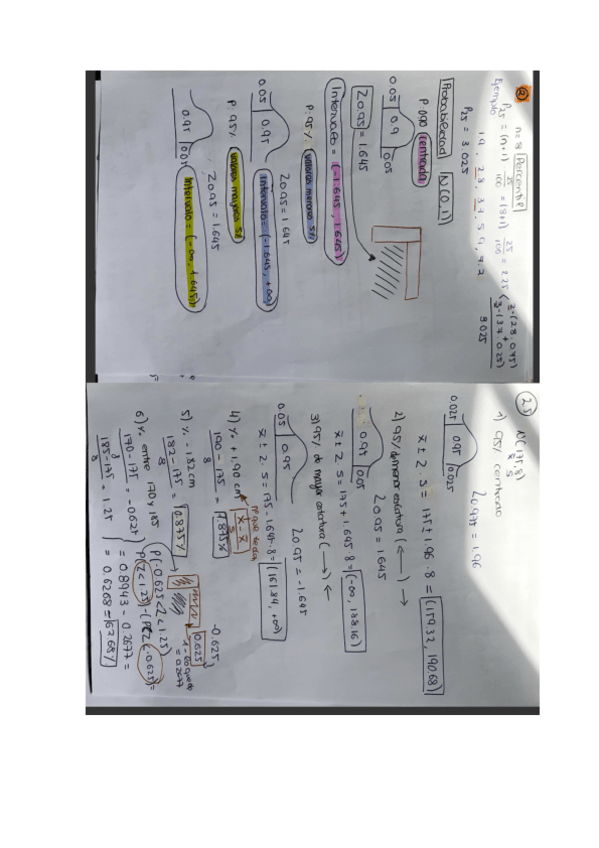 2
n=8 Percentil
P25 = (n+1) 25/100 = (8+1) 25/100 = 2.25
Ejemplo
1.9, 2.8, 3.7, 5.4, 7.2
P25 = 3.025
3.025
Probabilidad N(0,1)
P. 0.90 centrada
0.05 0.9 0.05
Z0.95 = 1.645
Intervalo = (-1.645, 1.645)
P. 95% valores menores
0.05 0.95
Z0.95 = 1.645
Intervalo = (-1.645, +∞)
P. 95% valores mayores
Z0.95 = 1.645
0.95 0.05
Intervalo = (-∞, 1.645)
2.5 N(175, 8)
x̄ S
1) 95% centrado
Z0.975 = 1.96
0.025 0.95 0.025
x̄ ± Z · S = 175 ± 1.96 · 8 = (159.32, 190.68)
2) 95% de menor estatura (←) →
Z0.95 = 1.645
0.95 0.05
x̄ ± Z · S = 175 + 1.645 · 8 = (-∞, 188.16)
3) 95% de mayor estatura (→) ←
Z0.95 = -1.645
0.05 0.95
x̄ ± Z · S = 175 - 1.645 · 8 = (161.84, +∞)
4) % + 190 cm
190 - 175 / 8 = 1.875%
5) % - 182 cm
182 - 175 / 8 = 0.875%
6) % entre 170 y 185
170 - 175 / 8 = -0.625
185 - 175 / 8 = 1.25
P(-0.625 < Z < 1.25)
P(Z < 1.25) - (P(Z < -0.625)) =
= 0.8943 - 0.2677 =
= 0.6268 = 62.68%
-0.625
0.625
= 0.2677